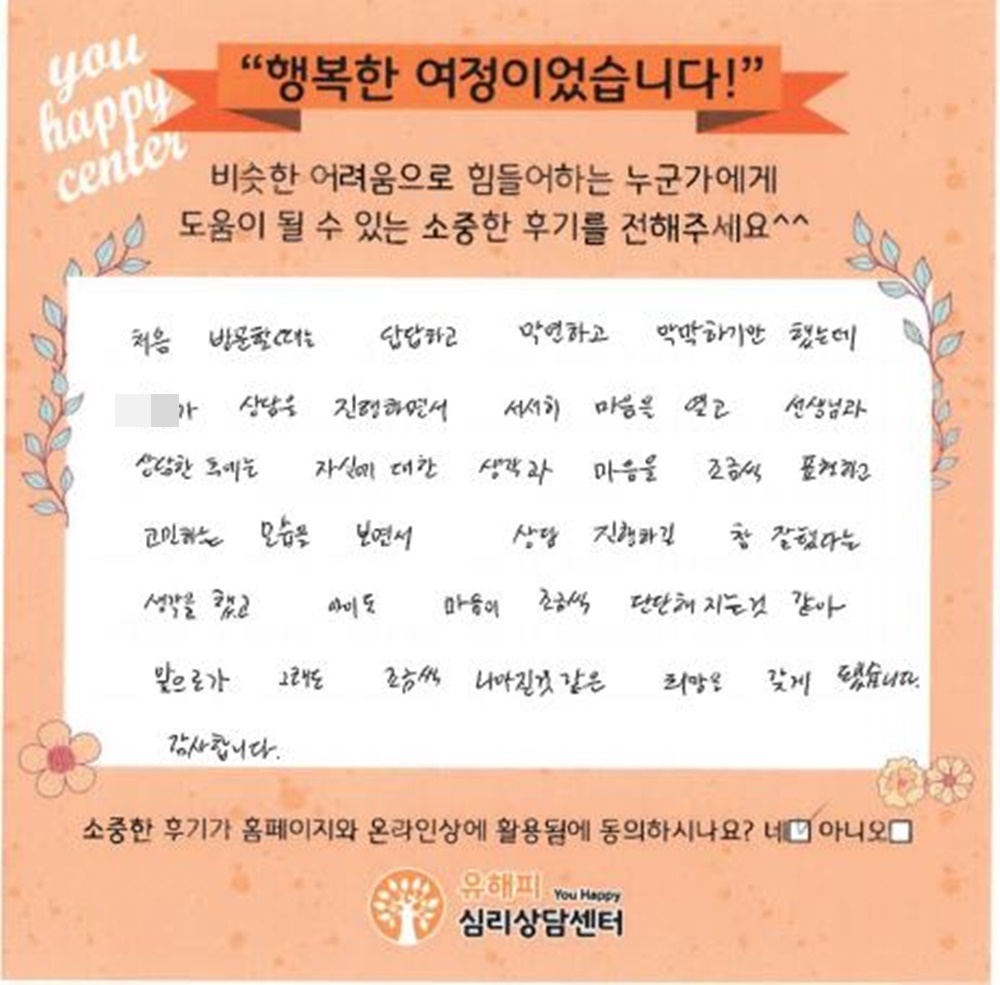 you
happy
center
“행복한 여정이었습니다!”
비슷한 어려움으로 힘들어하는 누군가에게
도움이 될 수 있는 소중한 후기를 전해주세요^^
처음 방문할때는 답답하고 막연하고 막막하기만 했는데
가 상담을 진행하면서 서서히 마음을 열고 선생님과
상담한 후에는 자신에 대한 생각과 마음을 조금씩 표현하고
고민하는 모습을 보면서 상담 진행하길 참 잘했다는
생각을 했고 아이도 마음이 조금씩 단단해 지는것 같아
앞으로가 그래도 조금씩 나아질것 같은 희망을 갖게 됐습니다.
감사합니다.
소중한 후기가 홈페이지와 온라인상에 활용됨에 동의하시나요? 네 아니오
유해피 You Happy
심리상담센터